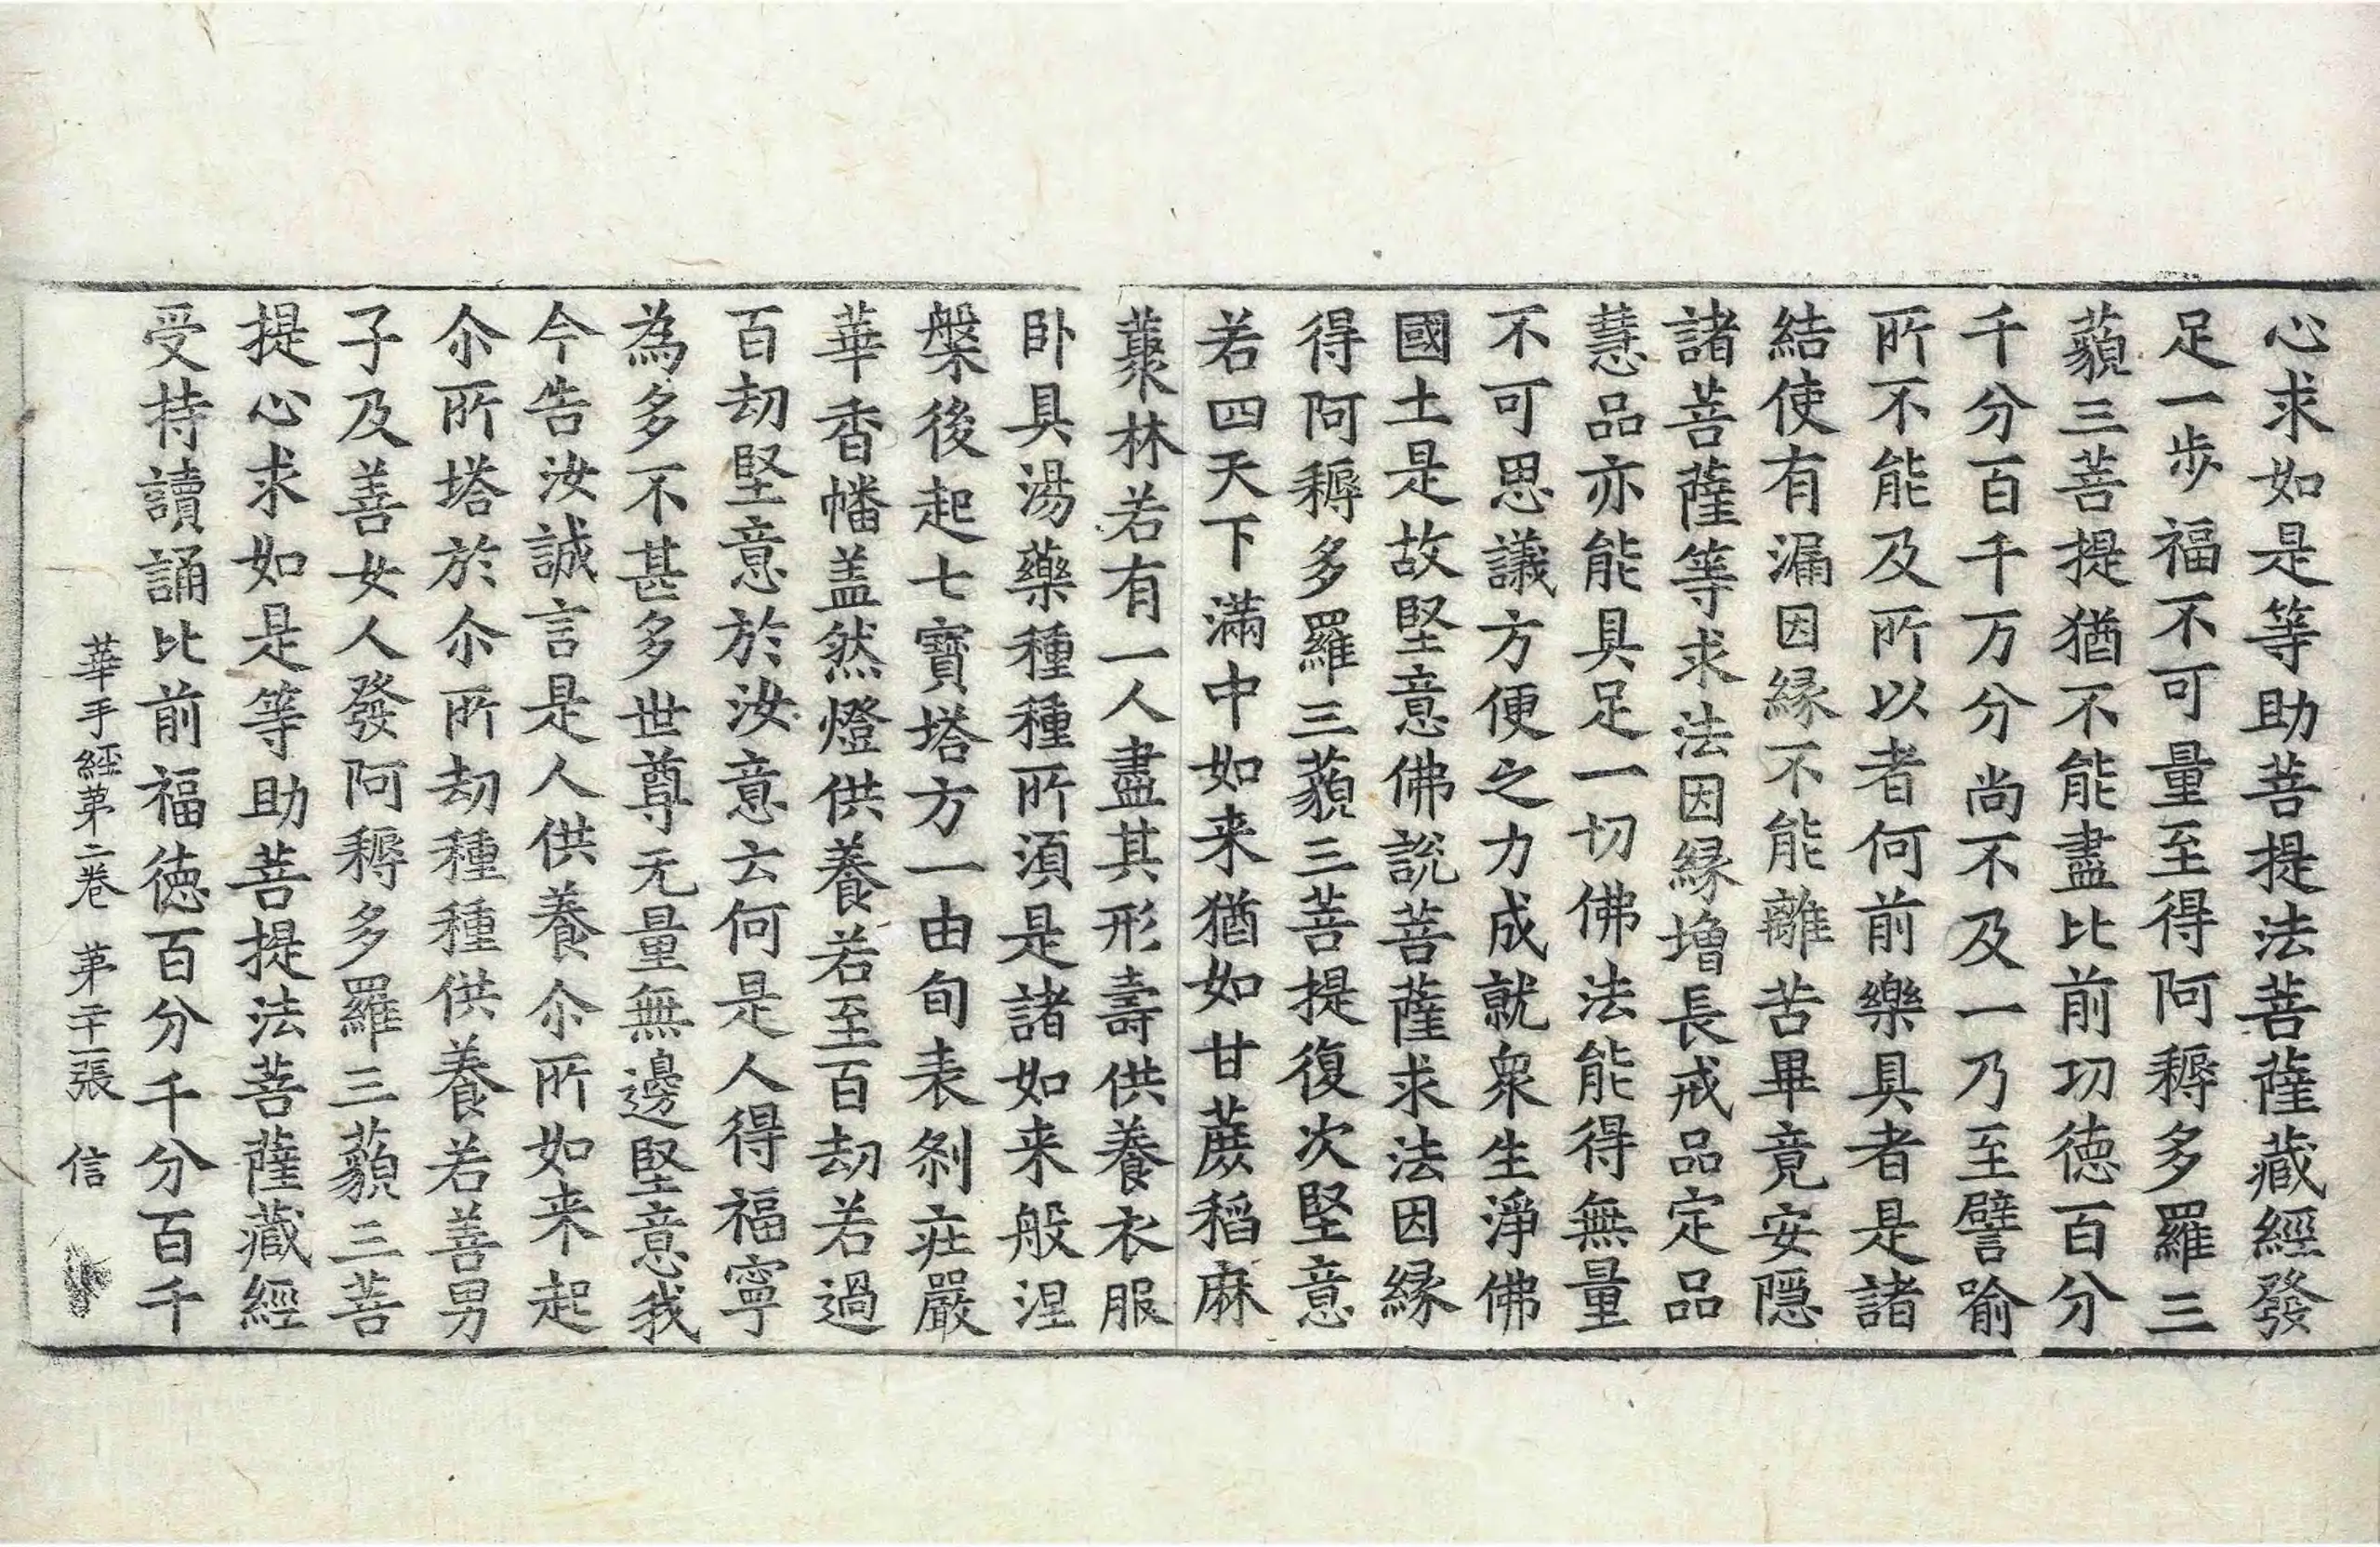 心求如是等助菩提法菩薩藏經發
足一步福不可量至得阿耨多羅三
藐三菩提猶不能盡比前功德百分
千分百千万分尚不及一乃至譬喻
所不能及所以者何前樂具者是諸
結使有漏因縁不能離苦畢竟安隠
諸菩薩等求法因縁増長戒品定品
慧品亦能具足一切佛法能得無量
不可思議方便之力成就衆生淨佛
國土是故堅意佛説菩薩求法因縁
得阿耨多羅三藐三菩提復次堅意
若四天下滿中如来猶如甘蔗稻麻
藂林若有一人盡其形壽供養衣服
卧具湯藥種種所須是諸如来般涅
槃後起七寶塔方一由旬表刹疘嚴
華香幡盖然燈供養若至百劫若過
百劫堅意於汝意云何是人得福寧
為多不甚多世尊无量無邊堅意我
今告汝誠言是人供養尒所如来起
尒所塔於尒所劫種種供養若善男
子及善女人發阿耨多羅三藐三菩
提心求如是等助菩提法菩薩藏經
受持讀誦比前福徳百分千分百千
華手經第二卷 第二十一張 信